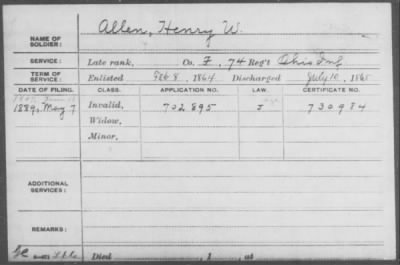 Allen, Henry W.
NAME OF
SOLDIER:
SERVICE: Late rank, Co. F, 74 Reg't Ohio Inf
TERM OF
SERVICE: Enlisted Feb 8, 1864 Discharged July 10, 1865
DATE OF FILING. CLASS. APPLICATION NO. LAW. CERTIFICATE NO.
1889, May 7 Invalid, 702895 J 730984
Widow,
Minor,
ADDITIONAL
SERVICES:
REMARKS:
Died , 1 , at